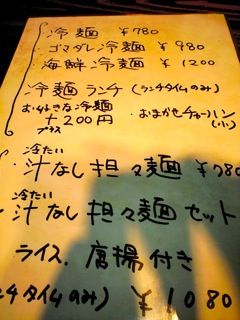 冷麺 ¥780
ゴマダレ冷麺 ¥980
海鮮冷麺 ¥1200
冷麺ランチ (ランチタイムのみ)
お好きな冷麺
+200円 おまかせチャーハン
プラス (小)
冷たい
汁なし担々麺 ¥780
冷たい
汁なし担々麺セット
ライス、唐揚付き
ンチタイムのみ) ¥1080